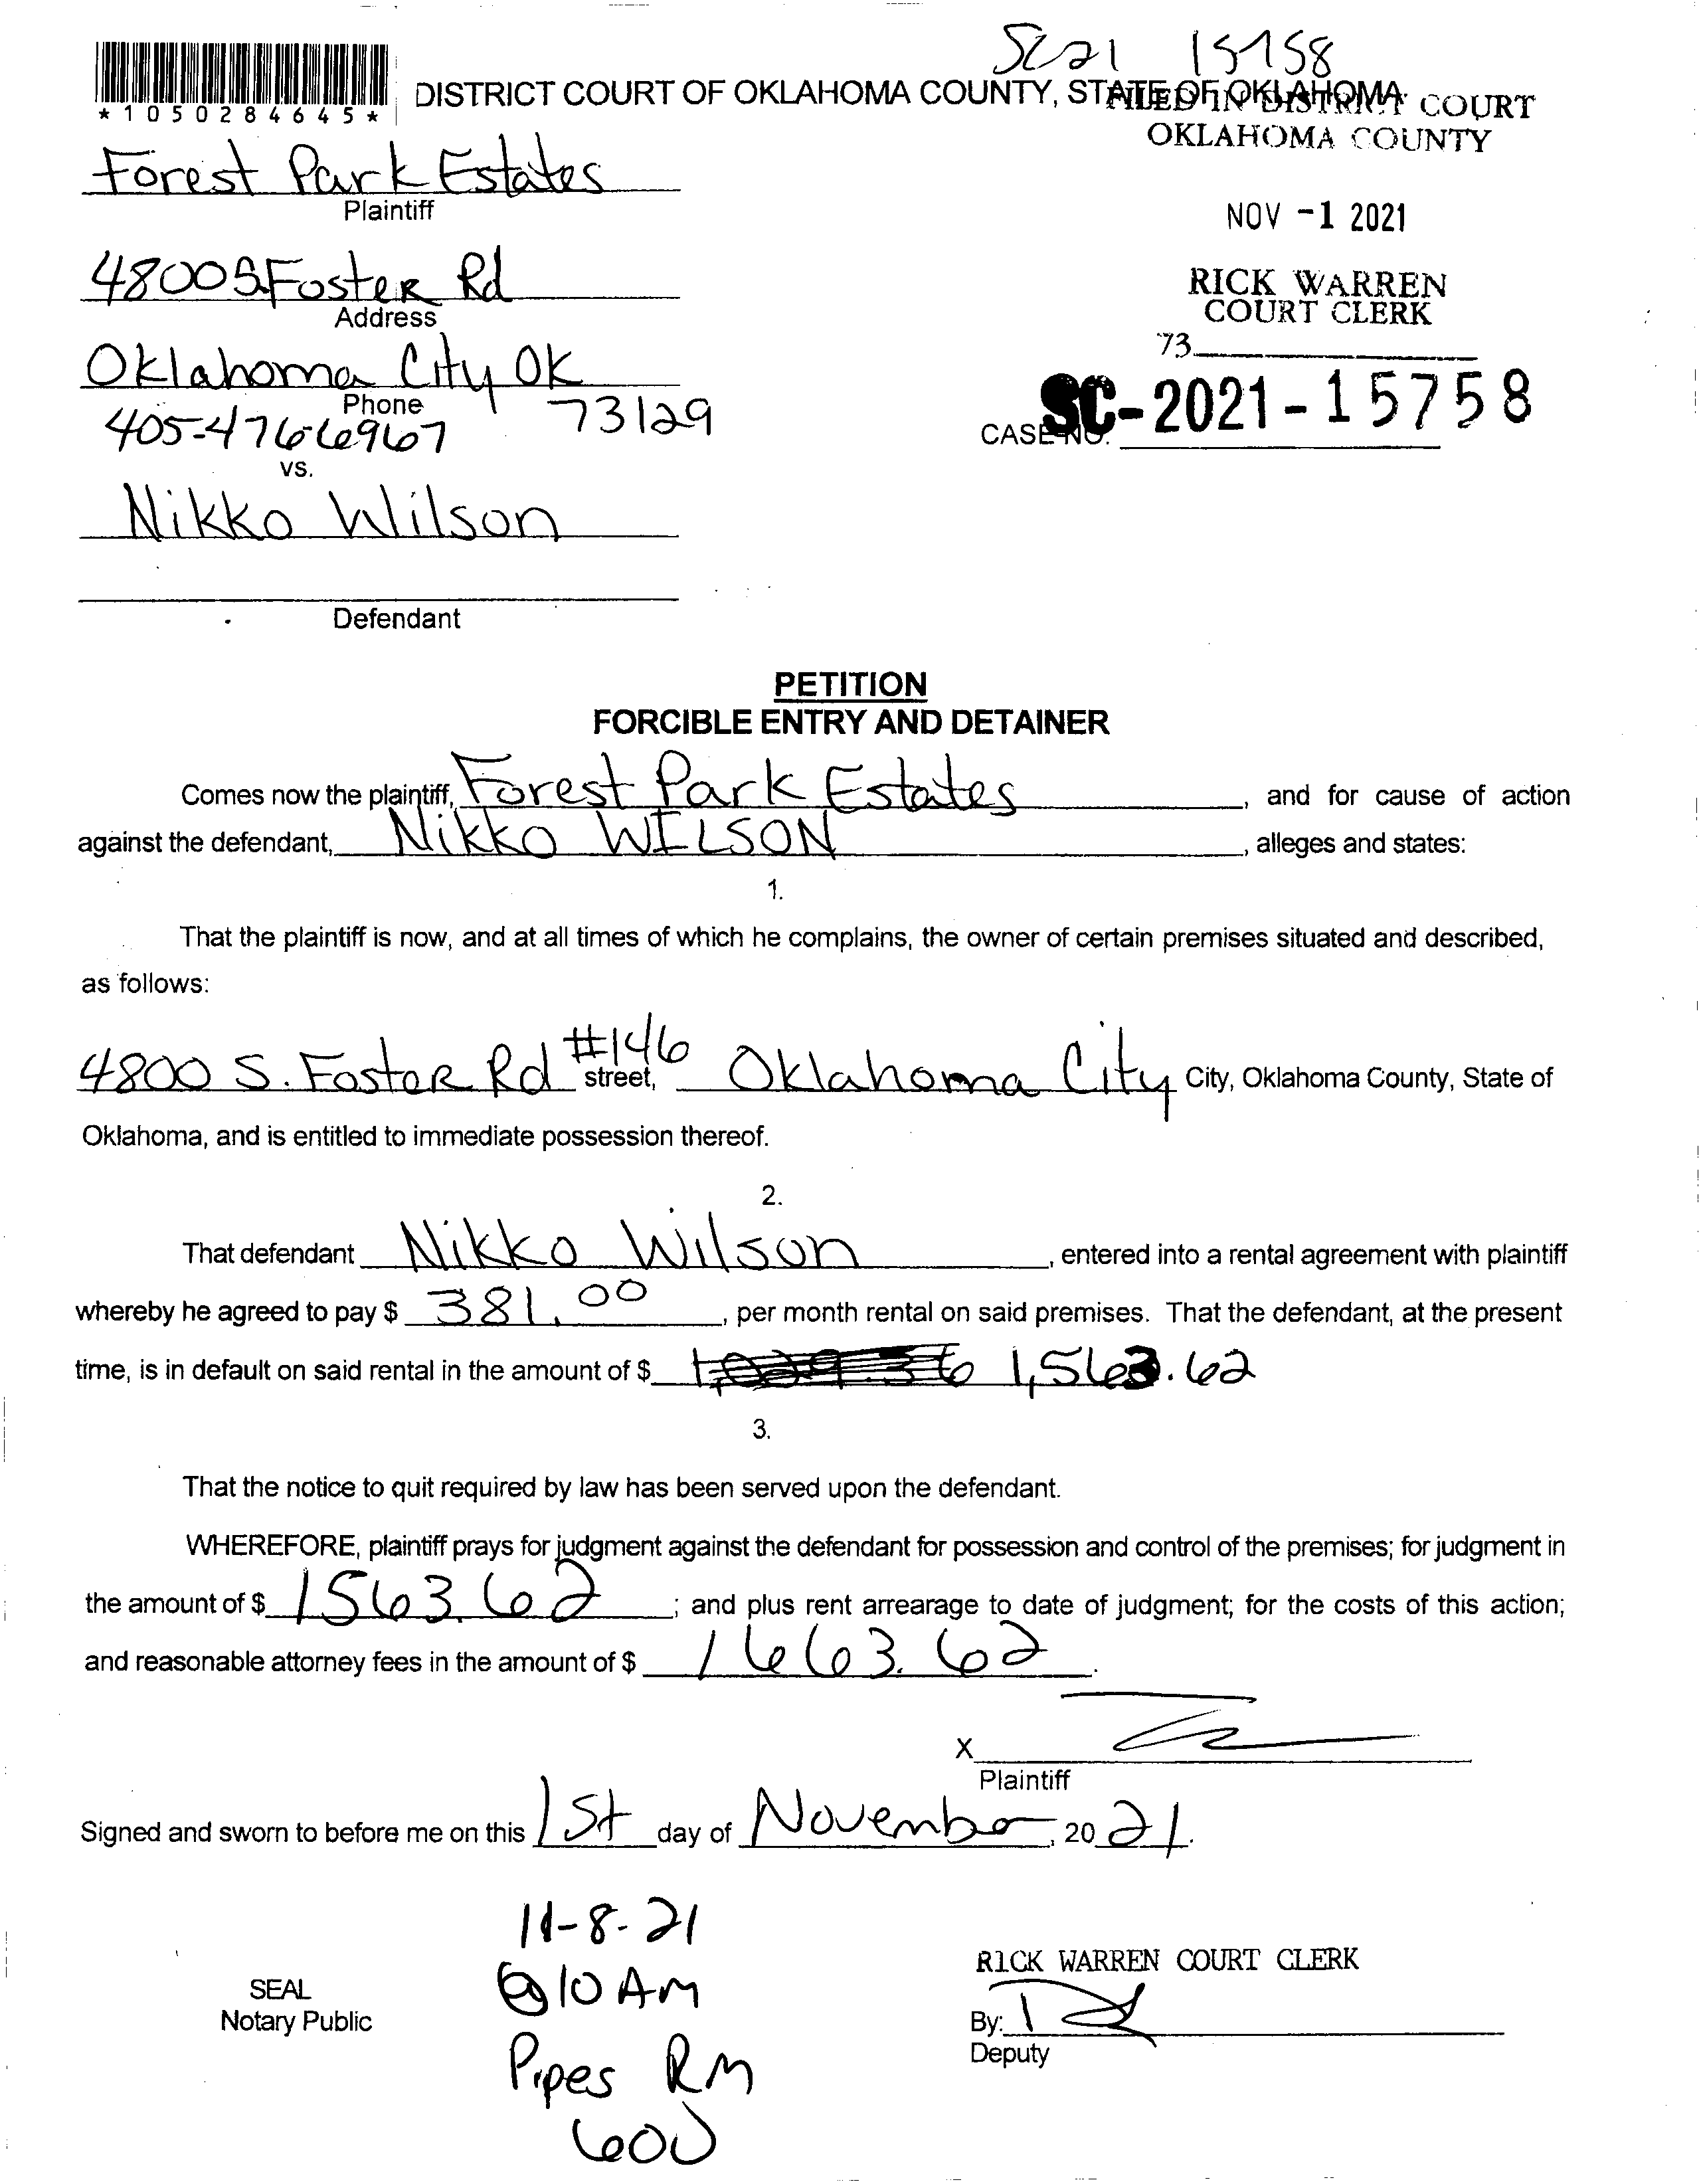 SC21 15758
*1050284645*
DISTRICT COURT OF OKLAHOMA COUNTY, STATE OF OKLAHOMA
FILED IN DISTRICT COURT
OKLAHOMA COUNTY
Forest Park Estates
Plaintiff
NOV -1 2021
4800 S. Foster Rd
Address
RICK WARREN
COURT CLERK
73
Oklahoma City OK
Phone
73129
405-476-6967
SC-2021-15758
CASE NO.
vs.
Nikko Wilson
Defendant
PETITION
FORCIBLE ENTRY AND DETAINER
Comes now the plaintiff, Forest Park Estates, and for cause of action
against the defendant, Nikko WILSON, alleges and states:
1.
That the plaintiff is now, and at all times of which he complains, the owner of certain premises situated and described,
as follows:
4800 S. Foster Rd #146 street, Oklahoma City City, Oklahoma County, State of
Oklahoma, and is entitled to immediate possession thereof.
2.
That defendant Nikko Wilson, entered into a rental agreement with plaintiff
whereby he agreed to pay $ 381.00, per month rental on said premises. That the defendant, at the present
time, is in default on said rental in the amount of $ 1,563.62
3.
That the notice to quit required by law has been served upon the defendant.
WHEREFORE, plaintiff prays for judgment against the defendant for possession and control of the premises; for judgment in
the amount of $ 1563.62; and plus rent arrearage to date of judgment; for the costs of this action;
and reasonable attorney fees in the amount of $ 1663.62.
X
Plaintiff
Signed and sworn to before me on this 1st day of November, 2021.
11-8-21
@10 AM
Pipes RM
600
SEAL
Notary Public
RICK WARREN COURT CLERK
By:
Deputy